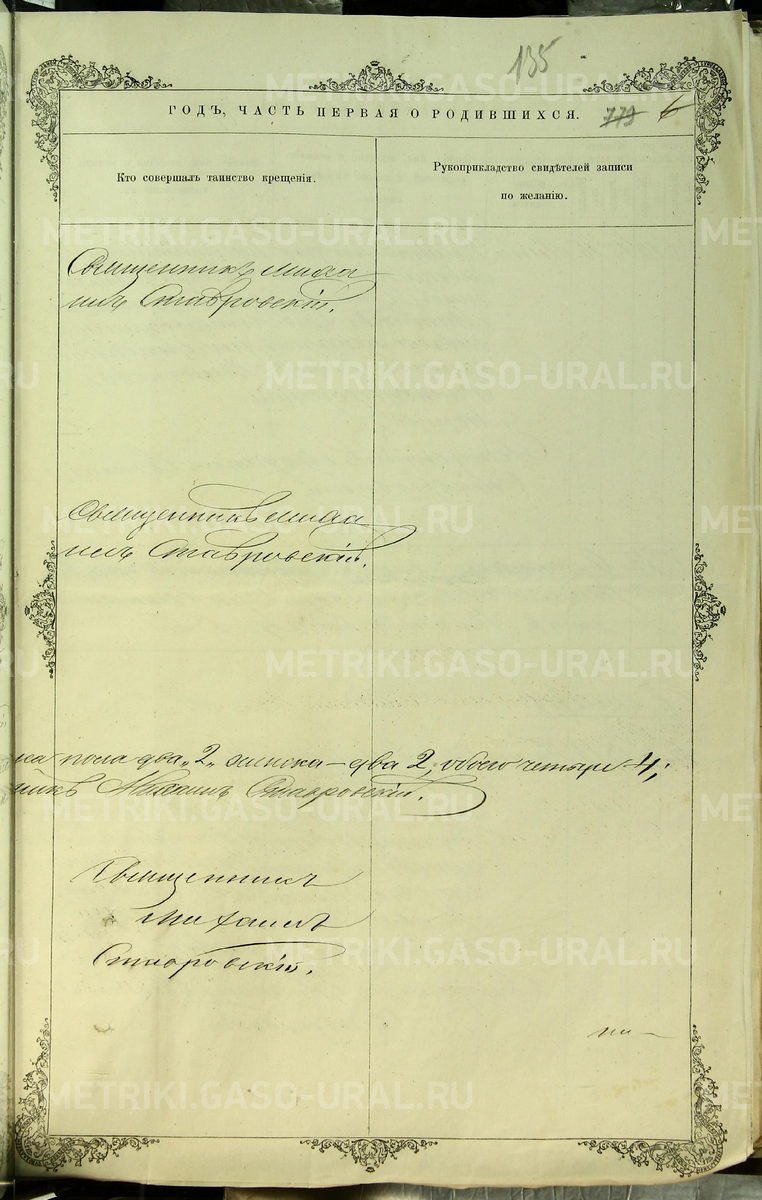 135
ГОДЪ, ЧАСТЬ ПЕРВАЯ О РОДИВШИХСЯ. 773 6
Кто совершалъ таинство крещенія.
Рукоприкладство свидѣтелей записи
по желанію.
Священникъ Миха
илъ Ставровскій.
Священникъ Миха
илъ Ставровскій.
пола два „2„ женска – два 2, обоего четыре 4;
Михаилъ Ставровскій.
Священникъ
Михаилъ
Ставровскій.
METRIKI.GASO-URAL.RU